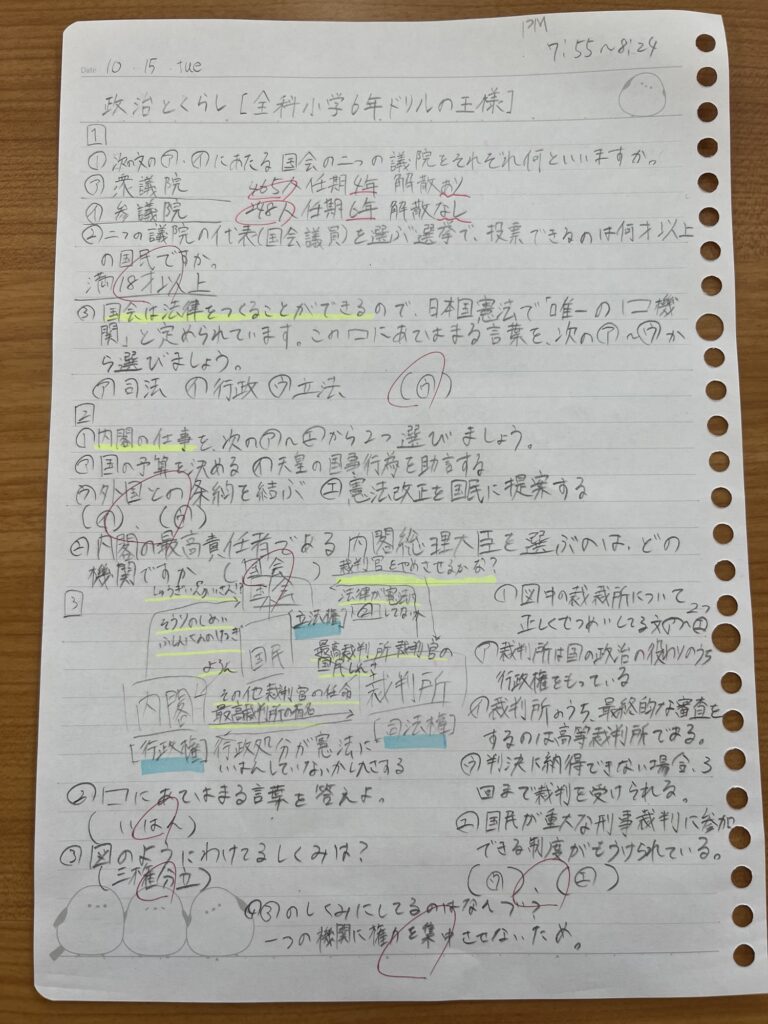 PM
7:55〜8:24
Date 10 . 15 . tue
政治とくらし [全科小学6年ドリルの王様]
1
① 次の文の㋐・㋑にあたる国会の二つの議院をそれぞれ何といいますか。
㋐ 衆議院 465人 任期4年 解散あり
㋑ 参議院 248人 任期6年 解散なし
② 二つの議院の代表(国会議員)を選ぶ選挙で、投票できるのは何才以上
の国民ですか。
満18才以上
③ 国会は法律をつくることができるので、日本国憲法で「唯一の□機
関」と定められています。この□にあてはまる言葉を、次の㋐〜㋒か
ら選びましょう。
㋐ 司法 ㋑ 行政 ㋒ 立法 (㋒)
2
① 内閣の仕事を、次の㋐〜㋓から2つ選びましょう。
㋐ 国の予算を決める ㋑ 天皇の国事行為を助言する
㋒ 外国との条約を結ぶ ㋓ 憲法改正を国民に提案する
② 内閣の最高責任者である内閣総理大臣を選ぶのは、どの
機関ですか (国会)
裁判官をやめさせるかな?
3
国会
法律が憲法に
[立法権]
国民
最高裁判所裁判官の
内閣
その他裁判官の任命
最高裁判所の指名
裁判所
[行政権]
[司法権]
行政処分が憲法に
いはんしていないかしんさする
② □にあてはまる言葉を答えよ。
(いはん)
③ 図のようにわけてるしくみは?
(三権分立)
① 図中の裁裁所について
正しくせつめいしてる文㋐〜㋓ 2つ
㋐ 裁判所は国の政治の役わりのうち
行政権をもっている
㋑ 裁判所のうち、最終的な審査を
するのは高等裁判所である。
㋒ 判決に納得できない場合、3
回まで裁判を受けられる。
㋓ 国民が重大な刑事裁判に参加
できる制度がもうけられている。
(㋒)、(㋓)
④ ③のしくみにしてるのはなんで?
一つの機関に権力を集中させないため。